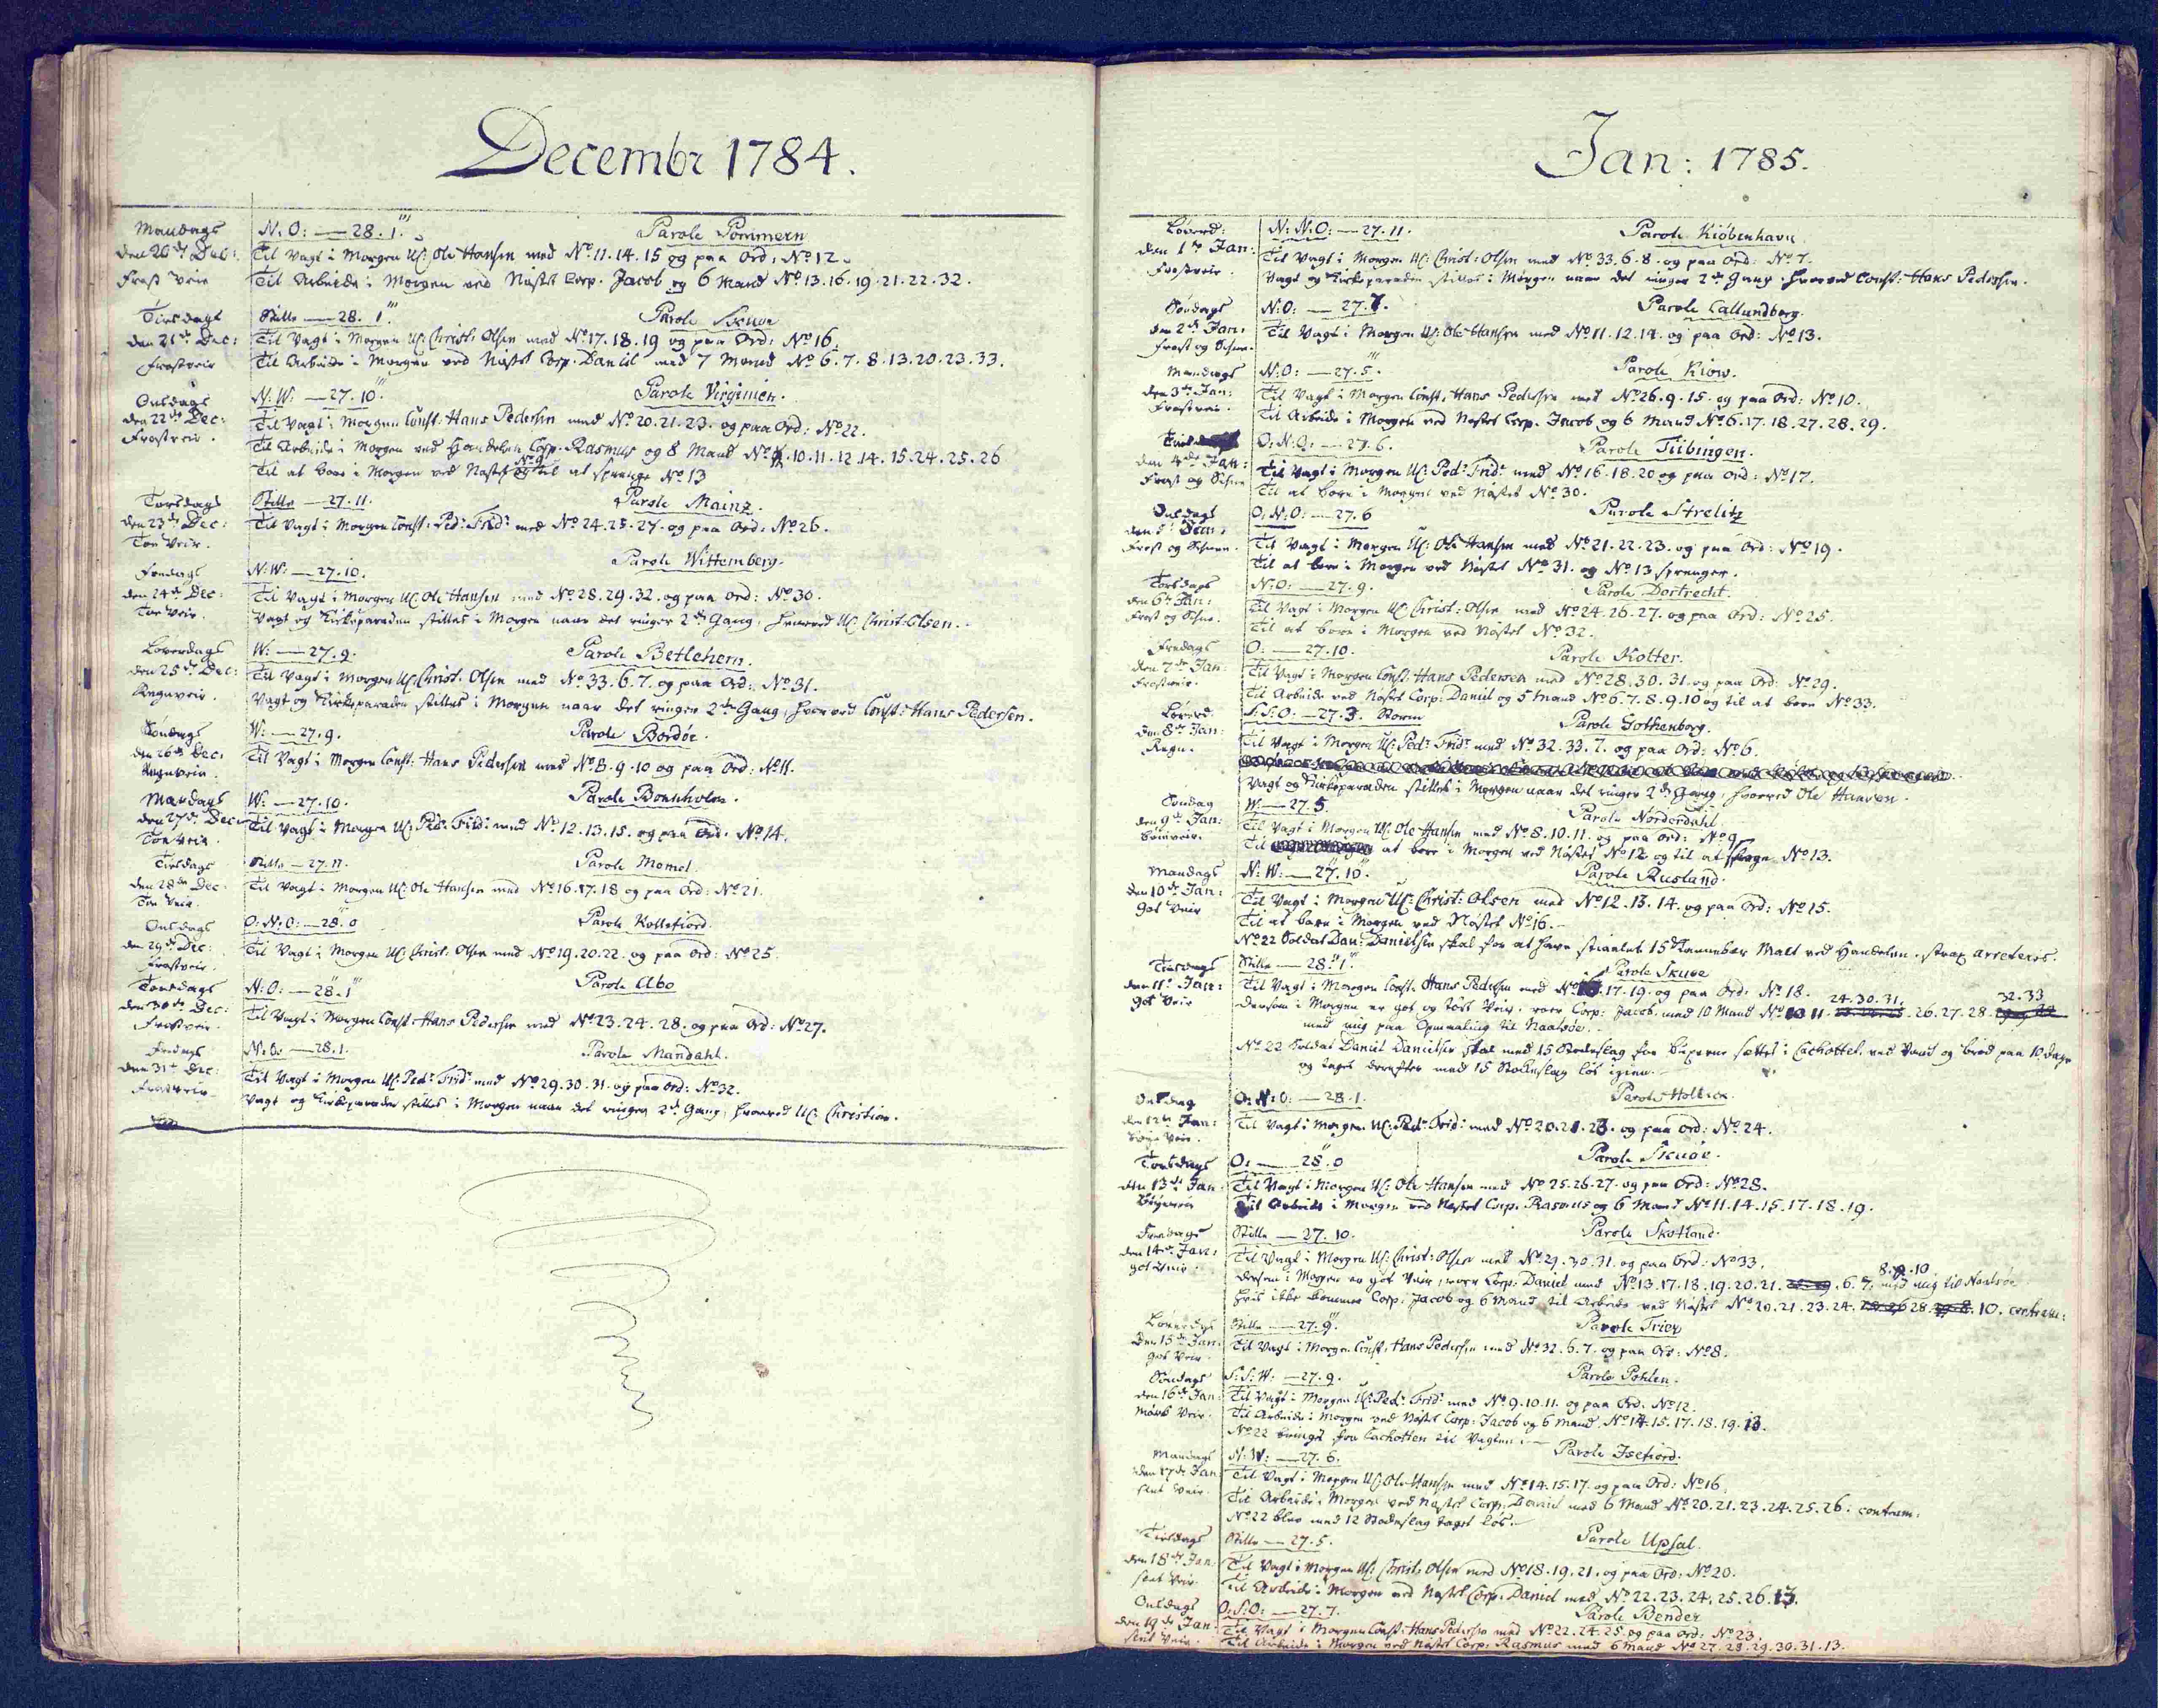 Decembr 1784.
Mandags N. O: — 28. 1. Parole Pommern
den 20de Dec: Til Vagt i Morgen UC: Ole Hansen med No. 11. 14. 15 og paa Ord: No 12.
Frost Veir Til Arbeide i Morgen ved Nøstet Corp. Jacob og 6 Mand No. 13. 16. 19. 21. 22. 32.
Tirsdags Stille — 28. 1. Parole
den 21de Dec: Til Vagt i Morgen UC: Christ: Olsen med No. 17. 18. 19 og paa Ord: No 16.
Frostveir Til Arbeide i Morgen ved Nøstet Corp. Daniel med 7 Mand No 6. 7. 8. 13. 20. 23. 33.
Onsdags N: W: — 27. 10. Parole Virginien.
den 22de Dec: Til Vagt i Morgen Const: Hans Pedersen med No. 20. 21. 23. og paa Ord: No. 22.
Frostveir. Til Arbeide i Morgen ved Handelen Corp. Rasmus og 8 Mand No 10. 11. 12. 14. 15. 24. 25. 26
Til at bore i Morgen ved Nøstet No 9 til at sprenge No 13
Torsdags Stille — 27. 11. Parole Mainz.
den 23de Dec: Til Vagt i Morgen Const: Ped: Frid: med No. 24. 25. 27. og paa Ord: No. 26.
Tøe Veir.
Fredags N: W: — 27. 10. Parole Wittemberg.
den 24de Dec: Til Vagt i Morgen UC: Ole Hansen med No. 28. 29. 32. og paa Ord: No. 30.
Tøe Veir. Vagt og Kirkeparaden stilles i Morgen naar det ringer 2de Gang, hvorved UC: Christ: Olsen.
Løverdags W: — 27. 9. Parole Betlehem.
den 25de Dec: Til Vagt i Morgen UC: Christ: Olsen med No. 33. 6. 7. og paa Ord: No. 31.
Regnveir. Vagt og Kirkeparaden stilles i Morgen naar det ringer 2de Gang, hvorved Const: Hans Pedersen.
Søndags W: — 27. 9. Parole Bordør.
den 26de Dec: Til Vagt i Morgen Const: Hans Pedersen med No. 8. 9. 10 og paa Ord: No. 11.
Regnveir.
Mandags W: — 27. 10. Parole Bornholm.
den 27de Dec: Til Vagt i Morgen UC: Ped: Frid: med No. 12. 13. 15. og paa Ord: No. 14.
Tøe Veir.
Tirsdags Stille — 27. 11. Parole Memel.
den 28de Dec: Til Vagt i Morgen UC: Ole Hansen med No. 16. 17. 18 og paa Ord: No. 21.
Tøe Veir.
Onsdags O: N: O: — 28. 0 Parole Kollefiord.
den 29de Dec: Til Vagt i Morgen UC: Christ: Olsen med No. 19. 20. 22. og paa Ord: No 25.
Frostveir.
Torsdags N: O: — 28. 1 Parole Abo
den 30de Dec: Til Vagt i Morgen Const: Hans Pedersen med No. 23. 24. 28. og paa Ord: No. 27.
Frostveir.
Fredags N: O: — 28. 1. Parole Mandahl.
den 31te Dec: Til Vagt i Morgen UC: Ped: Frid: med No. 29. 30. 31. og paa Ord: No. 32.
Frostveir. Vagt og Kirkeparaden stilles i Morgen naar det ringer 2de Gang, hvorved UC: Christian.
Jan: 1785.
Løverd: N: N: O: — 27. 11. Parole Kiøbenhavn.
den 1te Jan: Til Vagt i Morgen UC: Christ: Olsen med No. 33. 6. 8. og paa Ord: No. 7.
Frostveir. Vagt og Kirkeparaden stilles i Morgen naar det ringer 2de Gang, hvorved Const: Hans Pedersen.
Søndags N: O: — 27. 7. Parole Callundborg.
den 2de Jan: Til Vagt i Morgen UC: Ole Hansen med No. 11. 12. 14. og paa Ord: No 13.
Frost og Schne.
Mandags N: O: — 27. 5. Parole Kiow.
den 3de Jan: Til Vagt i Morgen Const: Hans Pedersen med No. 26. 9. 15. og paa Ord: No. 10.
Frostveir. Til Arbeide i Morgen ved Nøstet Corp. Jacob og 6 Mand No. 6. 17. 18. 27. 28. 29.
O: N: O: — 27. 6. Parole Tübingen.
den 4de Jan: Til Vagt i Morgen UC: Ped: Frid: med No. 16. 18. 20 og paa Ord: No 17.
Frost og Schne Til at bore i Morgen ved Nøstet No. 30.
Onsdags O: N: O: — 27. 6 Parole Strelitz
den 5t Jan: Til Vagt i Morgen UC: Ole Hansen med No. 21. 22. 23. og paa Ord: No 19.
Frost og Schnee. Til at bore i Morgen ved Nøstet No. 31. og No. 13 sprenger.
Torsdags N: O: — 27. 9. Parole Dortrecht.
den 6te Jan: Til Vagt i Morgen UC: Christ: Olsen med No. 24. 26. 27. og paa Ord: No 25.
Frost og Schne. Til at bore i Morgen ved Nøstet No 32.
Fredags O: — 27. 10. Parole Kotter.
den 7de Jan: Til Vagt i Morgen Const: Hans Pedersen med No 28. 30. 31. og paa Ord: No. 29.
Frostveir. Til Arbeide ved Nøstet Corp: Daniel og 5 Mand No 6. 7. 8. 9. 10 og til at bore No 33.
Løverd: S: S: O: — 27. 3. Storm Parole Gothenborg.
den 8de Jan: Til Vagt i Morgen UC: Ped: Frid: med No. 32. 33. 7. og paa Ord: No 6.
Regn.
Vagt og Kirkeparaden stilles i Morgen naar det ringer 2de Gang, hvorved Ole Hansen.
Søndag W: — 27. 5. Parole Norderdahl.
den 9de Jan: Til Vagt i Morgen UC: Ole Hansen med No 8. 10. 11. og paa Ord: No 9
Til at bore i Morgen ved Nøstet No 12 og til at No. 13.
Mandags N: W: — 27. 10. Parole Rusland.
den 10de Jan: Til Vagt i Morgen UC: Christ: Olsen med No 12. 13. 14. og paa Ord: No 15.
got Veir Til at bore i Morgen ved Nøstet No 16.
No. 22 Soldat Dan: Danielsen skal for at have stiaalet 15 Kannebær Malt ved Handelen, strax arreteres.
Tirsdags Stille — 28. 1. Parole Skuøe
den 11te Jan: Til Vagt i Morgen Const: Hans Pedersen med No 17. 19. og paa Ord: No 18.
24. 30. 31. 32. 33
got Veir dersom i Morgen er got og tørt Veir, roer Corp: Jacob med 10 Mand No 11. 26. 27. 28.
med mig paa Opmaaling til Naalsøe.
No. 22 Soldat Daniel Danielsen skal med 15 Stokeslag sættes i Cachottet ved Vand og brød paa 10 dage
og tages derefter med 15 Stokeslag løs igien.
Onsdag O: N: O: — 28. 1. Parole
den 12te Jan: Til Vagt i Morgen UC: Ped: Frid: med No. 20. 21. 23. og paa Ord: No. 24.
Torsdags O: — 28. 0 Parole Skuøe.
den 13de Jan. Til Vagt i Morgen UC: Ole Hansen med No 25. 26. 27. og paa Ord: No 28.
Til Arbeide i Morgen ved Nøstet Corp. Rasmus og 6 Mand No. 11. 14. 15. 17. 18. 19.
Fredags Stille — 27. 10. Parole Skotland.
den 14de Jan: Til Vagt i Morgen UC: Christ: Olsen med No. 29. 30. 31. og paa Ord: No 33.
8. 9. 10
got Veir. dersom i Morgen er got Veir, roer Corp: Daniel med No. 13. 17. 18. 19. 20. 21. 6. 7. med mig til Naalsøe
hvis ikke kommer Corp: Jacob og 6 Mand til Arbeide ved Nøstet No. 20. 21. 23. 24. 28. 10. contram:
Løverdags Stille — 27. 9. Parole Trier
den 15de Jan: Til Vagt i Morgen Const: Hans Pedersen med No 32. 6. 7. og paa Ord: No 8.
got Veir.
Søndags S: S: W: — 27. 9. Parole Pohlen.
den 16de Jan: Til Vagt i Morgen UC: Ped: Frid: med No. 9. 10. 11. og paa Ord. No 12.
Mørk Veir. Til Arbeide i Morgen ved Nøstet Corp: Jacob og 6 Mand No 14. 15. 17. 18. 19. 13.
No 22 bringes fra Cachotten til Vagten.
Mandags N: W: — 27. 6. Parole Isefiord.
den 17de Jan Til Vagt i Morgen UC: Ole Hansen med No. 14. 15. 17. og paa Ord: No 16.
Til Arbeide i Morgen ved Nøstet Corp: Daniel med 6 Mand No. 20. 21. 23. 24. 25. 26. contram:
No. 22 blev med 12 Stokeslag taget løs.
Tirsdags Stille — 27. 5. Parole Upsal.
den 18de Jan: Til Vagt i Morgen UC: Christ: Olsen med No. 18. 19. 21. og paa Ord: No 20.
Til Arbeide i Morgen ved Nøstet Corp. Daniel med No. 22. 23. 24. 25. 26. 13.
Onsdags O: S: O: — 27. 7. Parole Bender
den 19de Jan: Til Vagt i Morgen Const: Hans Pedersen med No 22. 24. 25. og paa Ord: No 23.
Til Arbeide i Morgen ved Nøstet Corp: Rasmus med 6 Mand No 27. 28. 29. 30. 31. 13.